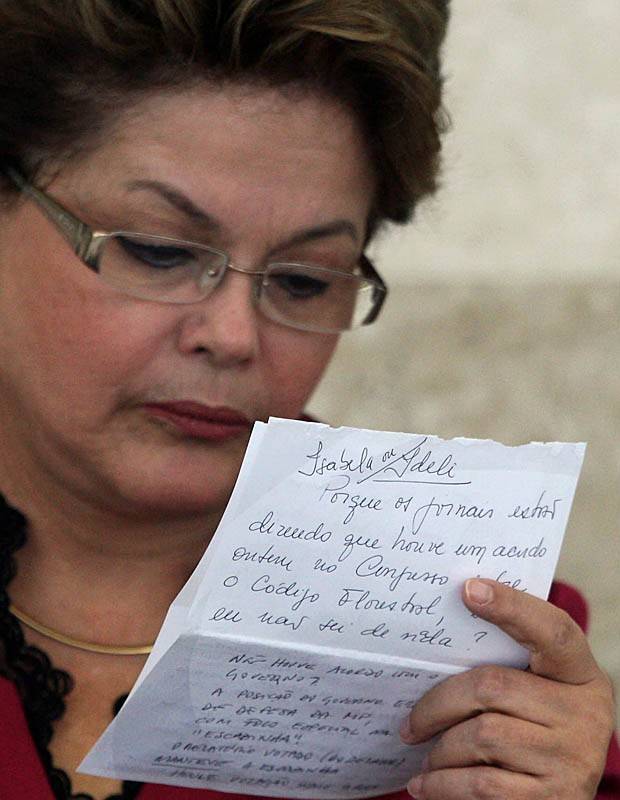 Isabela ou Ideli
Porque os jornais estão
dizendo que houve um acordo
ontem no Congresso sobre
o Código Florestal, e
eu não sei de nada?
NÃO HOUVE ACORDO COM O
GOVERNO.
A POSIÇÃO DO GOVERNO É
DE DEFESA DA MP
COM FOCO ESPECIAL NA
"ESCADINHA"
O RELATÓRIO VOTADO
MANTEVE A ESCADINHA
HOUVE